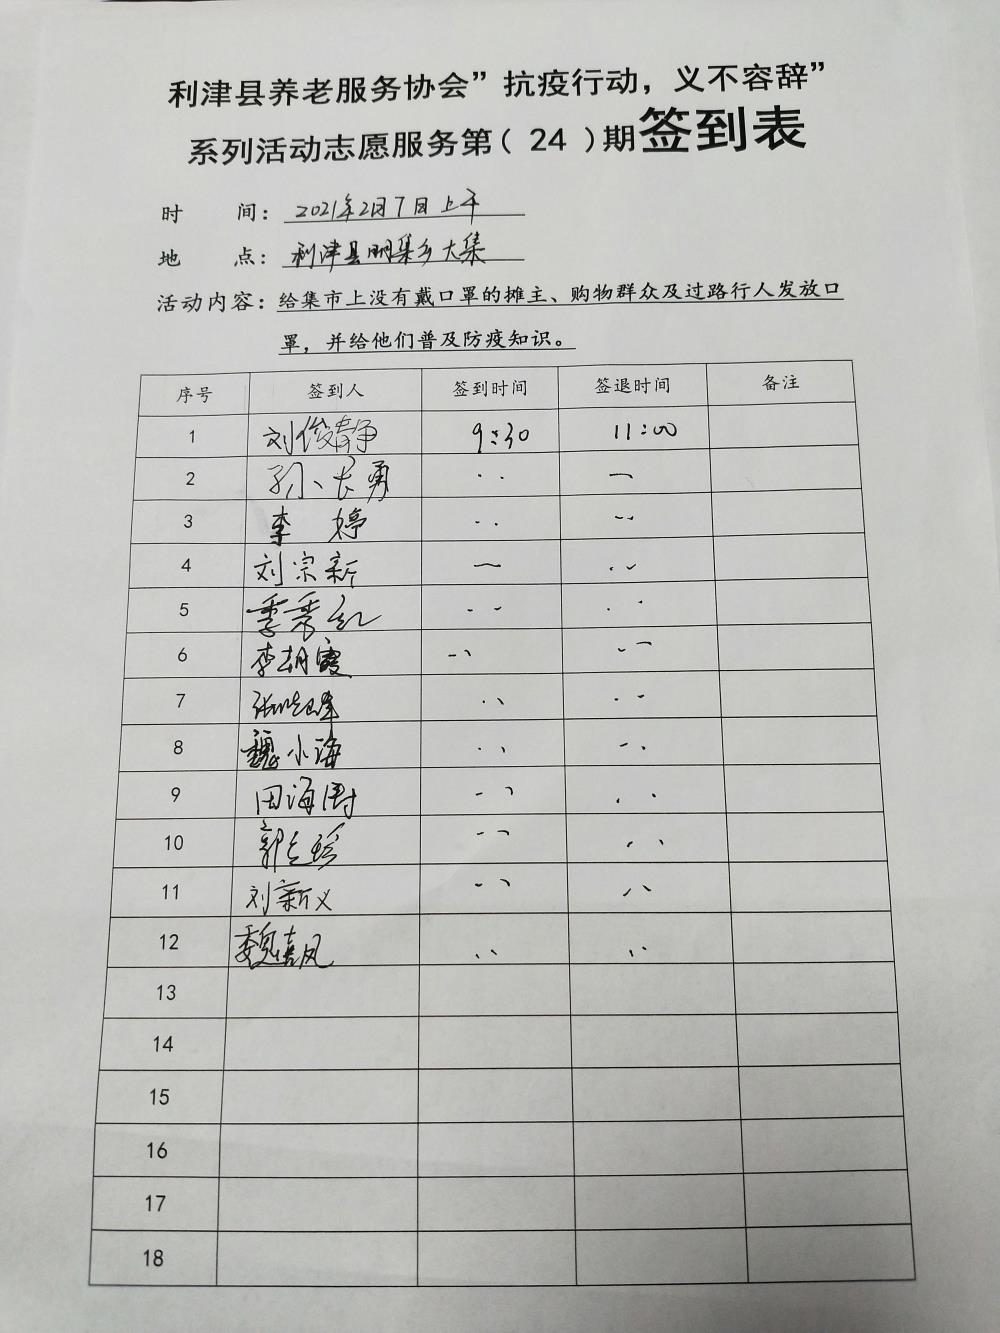 利津县养老服务协会”抗疫行动，义不容辞”
系列活动志愿服务第（ 24 ）期签到表
时 间：2021年2月7日上午
地 点：利津县明集乡大集
活动内容：给集市上没有戴口罩的摊主、购物群众及过路行人发放口
罩，并给他们普及防疫知识。
序号 签到人 签到时间 签退时间 备注
1 刘俊静 9:30 11:00
2 孙长勇
3 李婷
4 刘宗新
5 季秀红
6 李胡霞
7
8 魏小海
9 田海涛
10 郭志珍
11 刘新义
12 魏喜凤
13
14
15
16
17
18